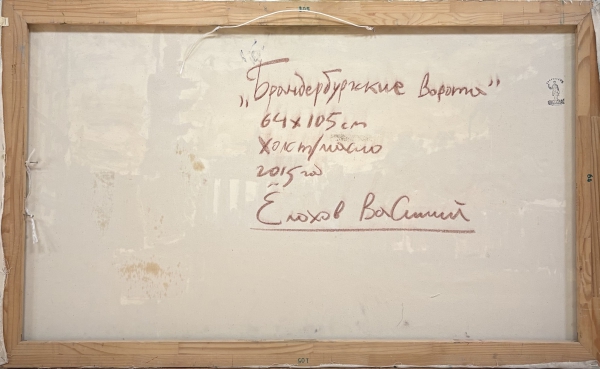 „Брандербургские Ворота"
64х105 см
Холст/масло
2015 год
Ёлохов Василий
105